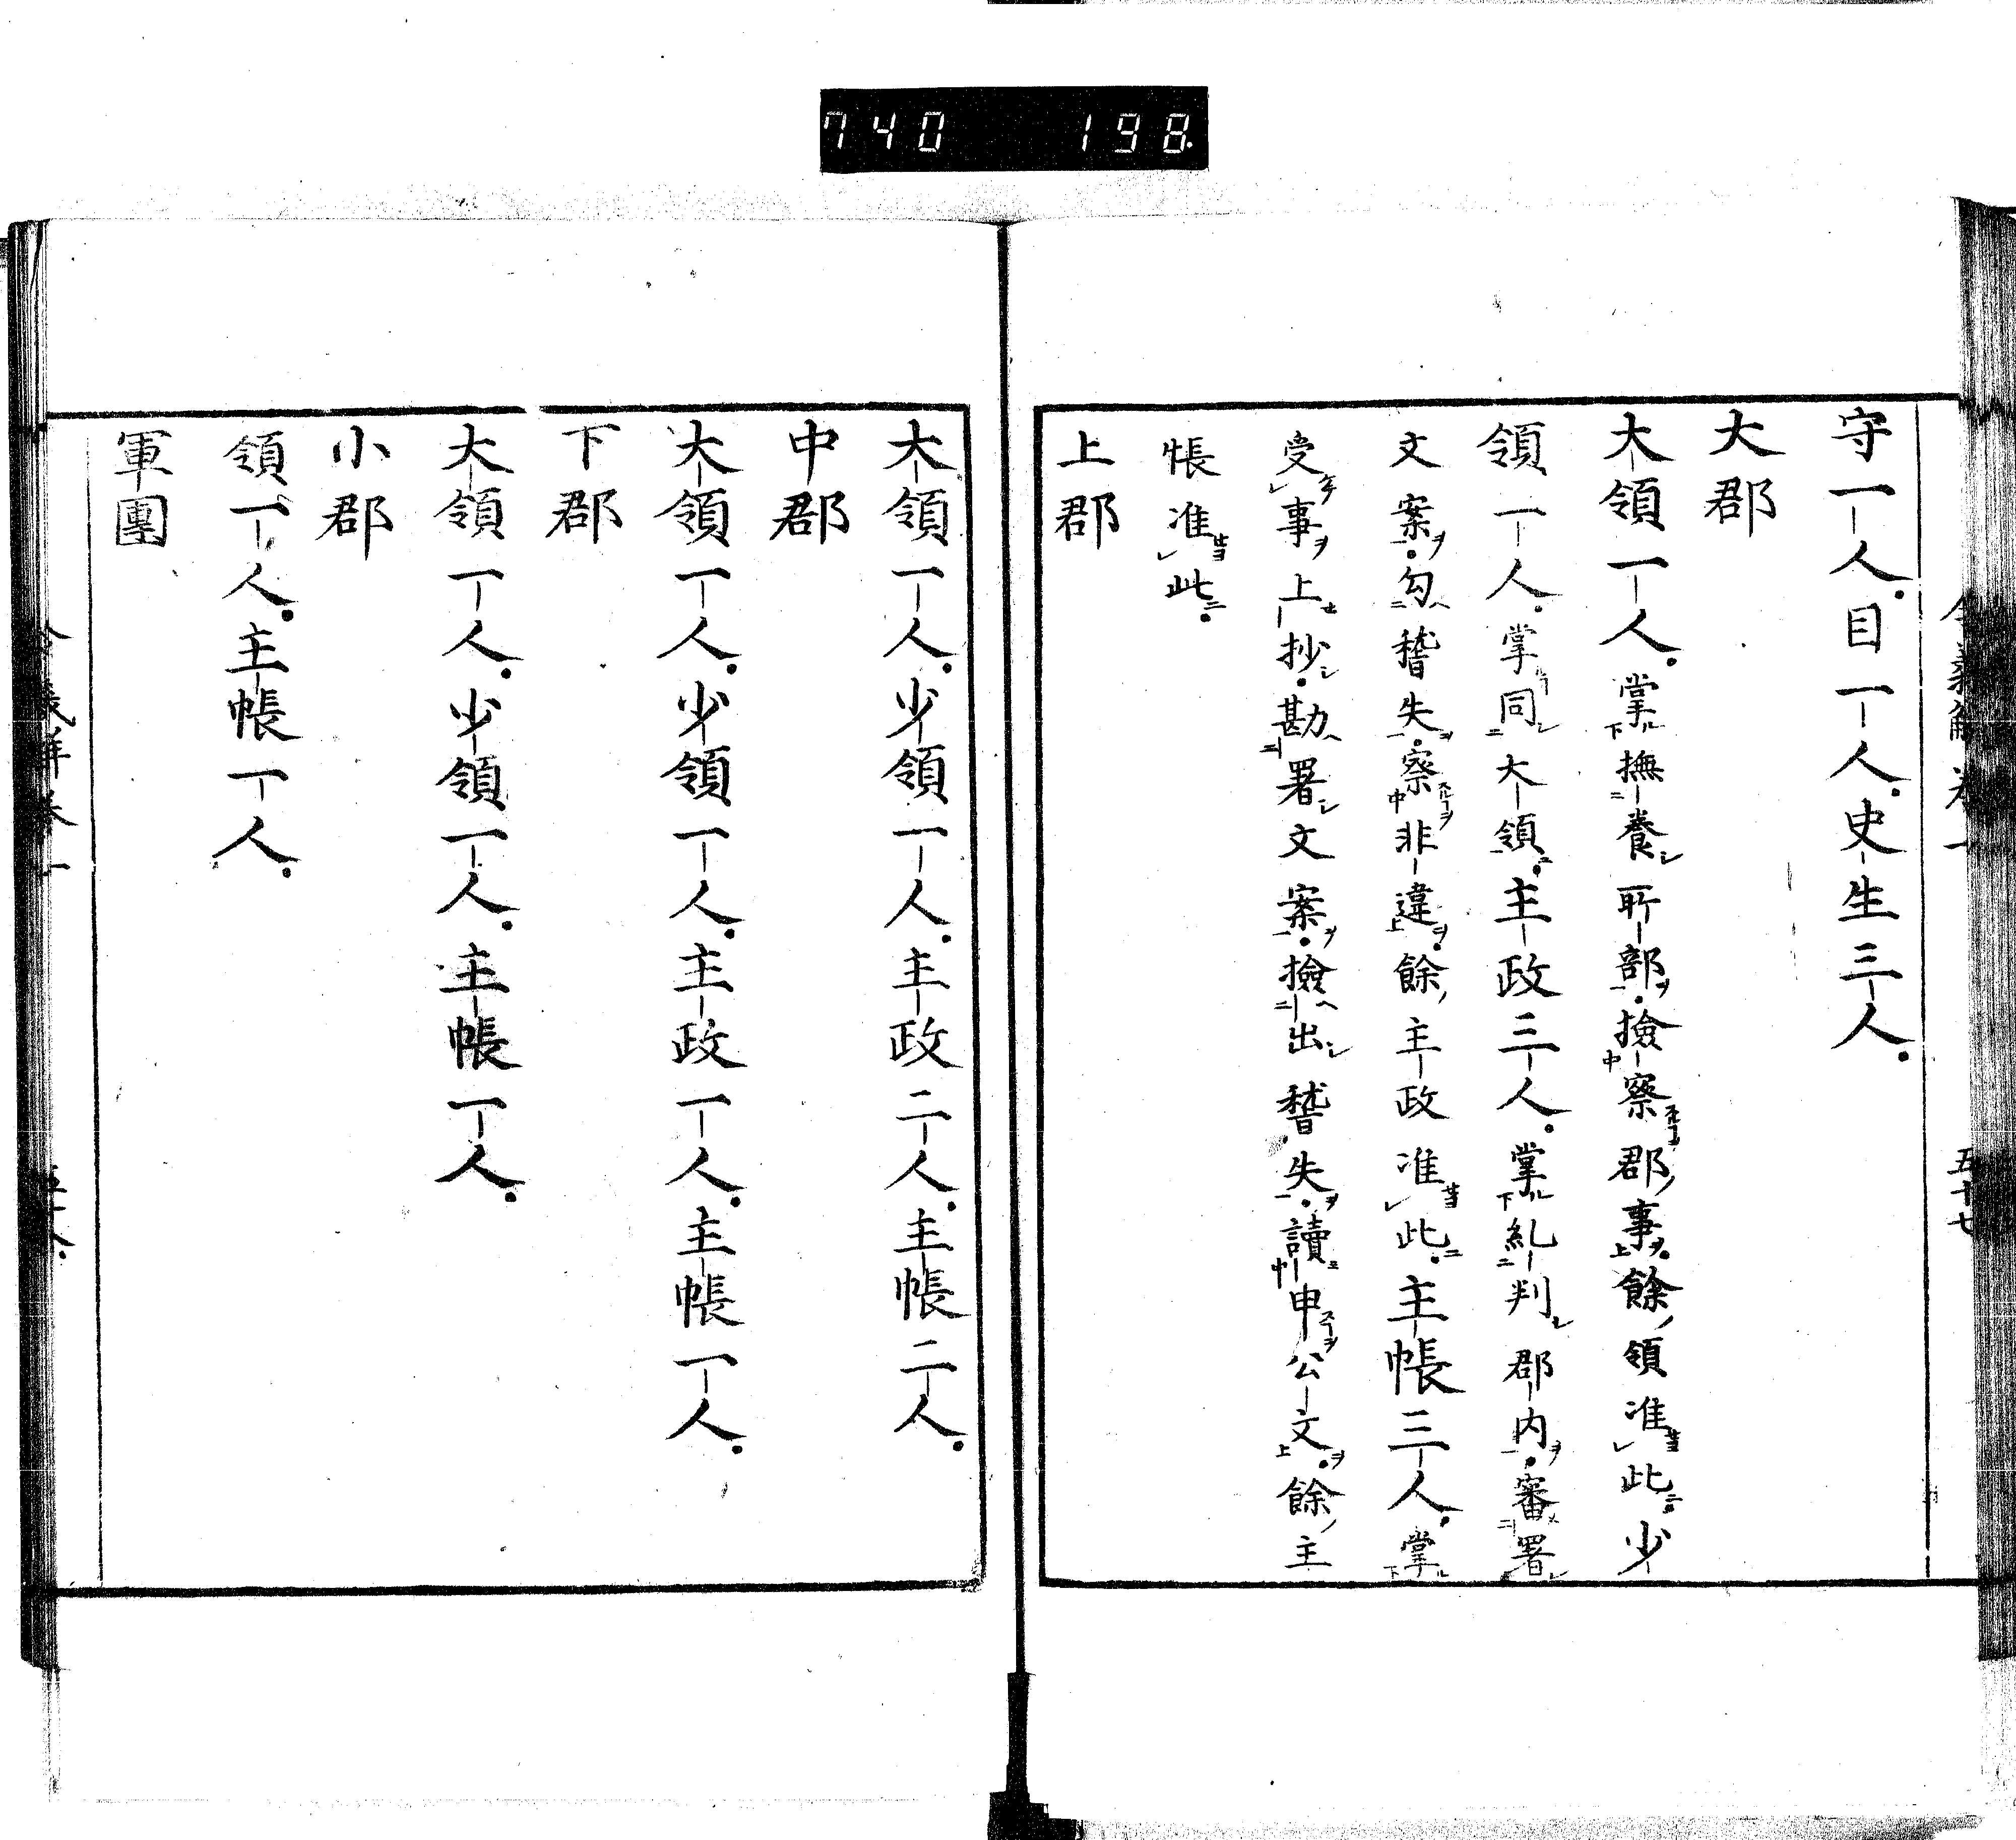 740 198
守一人。目一人。史生三人。
大郡
大領一人。掌撫養所部。撿察郡事。餘領准此。少
領一人。掌同大領。主政三人。掌糺判郡內。審署
文案。勾稽失。察非違。餘主政准此。主帳三人。掌
受事上抄。勘署文案。撿出稽失。讀申公文。餘主
帳准此。
上郡
大領一人。少領一人。主政二人。主帳二人。
中郡
大領一人。少領一人。主政一人。主帳一人。
下郡
大領一人。少領一人。主帳一人。
小郡
領一人。主帳一人。
軍團